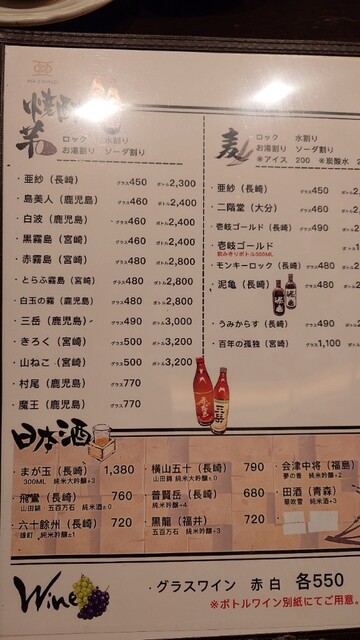 焼酎
芋
ロック 水割り
お湯割り ソーダ割り
・亜紗（長崎） グラス450 ボトル2,300
・島美人（鹿児島） グラス460 ボトル2,400
・白波（鹿児島） グラス460 ボトル2,400
・黒霧島（宮崎） グラス460 ボトル2,400
・赤霧島（宮崎） グラス480 ボトル2,800
・とらふ霧島（宮崎） グラス480 ボトル2,800
・白玉の霧（鹿児島） グラス480 ボトル2,800
・三岳（鹿児島） グラス490 ボトル3,000
・きろく（宮崎） グラス500 ボトル3,200
・山ねこ（宮崎） グラス500 ボトル3,200
・村尾（鹿児島） グラス770
・魔王（鹿児島） グラス770
麦
ロック 水割り
お湯割り ソーダ割り
※アイス 200 ※炭酸水 2
・亜紗（長崎） グラス450
・二階堂（大分） グラス460
・壱岐ゴールド（長崎） グラス490
・壱岐ゴールド
飲みきりボトル500ML
・モンキーロック（長崎） グラス480
・泥亀（長崎） グラス480
・うみからす（長崎） グラス490
・百年の孤独（宮崎） グラス1,100
日本酒
・まが玉（長崎） 1,380
300ML 純米大吟醸+3
・飛鸞（長崎） 760
山田錦 五百万石 純米酒±0
・六十餘州（長崎） 720
雄町 純米吟醸±1
・横山五十（長崎） 790
山田錦 純米大吟醸±0
・普賢岳（長崎） 680
純米吟醸+4
・黒龍（福井） 720
五百万石 純米吟醸+3
・会津中将（福島）
夢の香 純米酒+2
・田酒（青森）
華吹雪 純米酒+3
Wine
・グラスワイン 赤 白 各550
※ボトルワイン別紙にてご用意